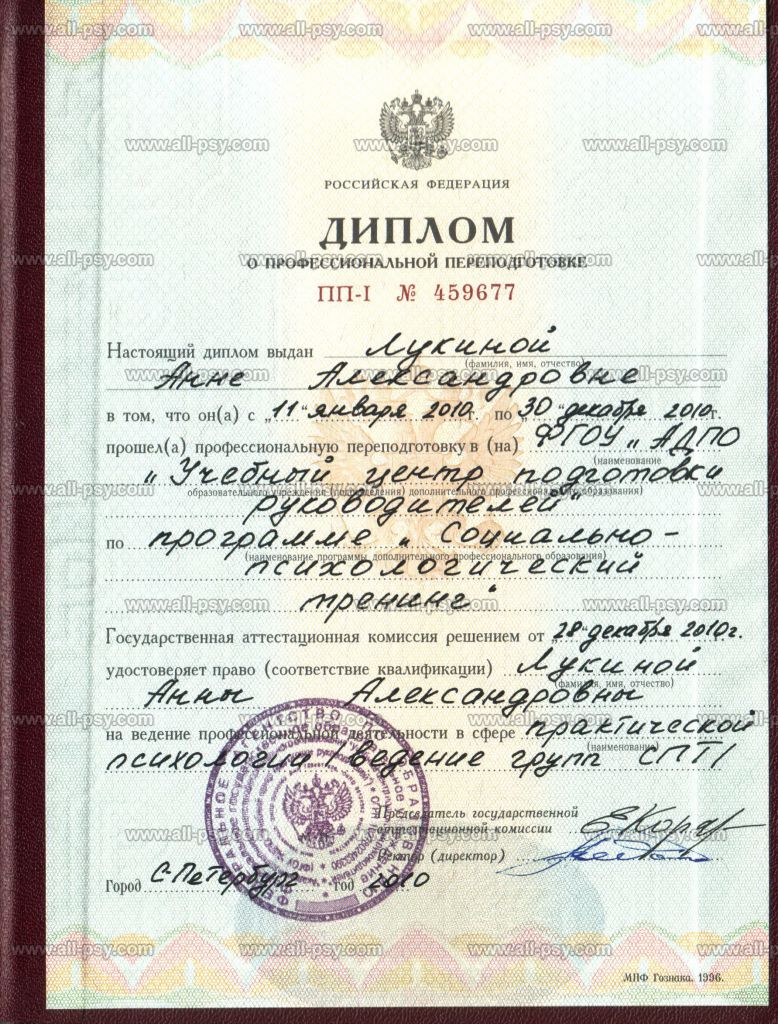 www.all-psy.com www.all-psy.com www.all-psy.com www.all-psy.com
РОССИЙСКАЯ ФЕДЕРАЦИЯ
ДИПЛОМ
О ПРОФЕССИОНАЛЬНОЙ ПЕРЕПОДГОТОВКЕ
ПП-I № 459677
Настоящий диплом выдан Лукиной
(фамилия, имя, отчество)
Анне Александровне
в том, что он(а) с „11“ января 2010 г. по „30“ декабря 2010г.
прошел(а) профессиональную переподготовку в (на) ФГОУ „АДПО
(наименование
„Учебный центр подготовки
образовательного учреждения (подразделения) дополнительного профессионального образования)
руководителей“
по программе „Социально-
(наименование программы, дополнительного профессионального образования)
психологический
тренинг“
Государственная аттестационная комиссия решением от „28“ декабря 2010г.
удостоверяет право (соответствие квалификации) Лукиной
(фамилия, имя, отчество)
Анны Александровны
на ведение профессиональной деятельности в сфере практической
(наименование)
психологии /ведение групп СПТ/
Председатель государственной
аттестационной комиссии
Ректор (директор)
Город С-Петербург год 2010
МПФ Гознака. 1996.